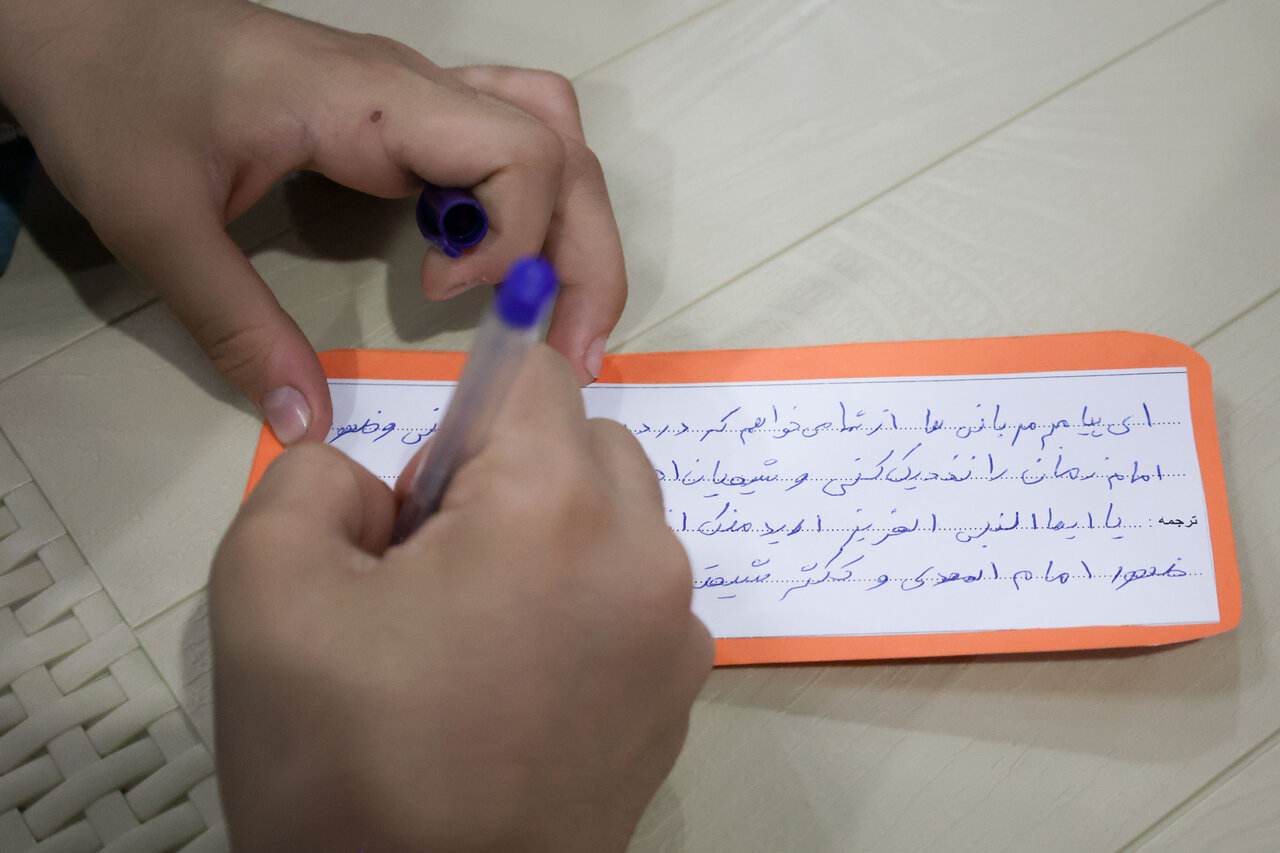 ای پیامبر مهربانی ها از شما می‌خواهم که در د نی و ظهور
امام زمان را نزدیک کنی و شیعیان
ترجمه : یا ایها النبی العزیز ارید منک ان
ظهور امام المهدی و کثر شیعت